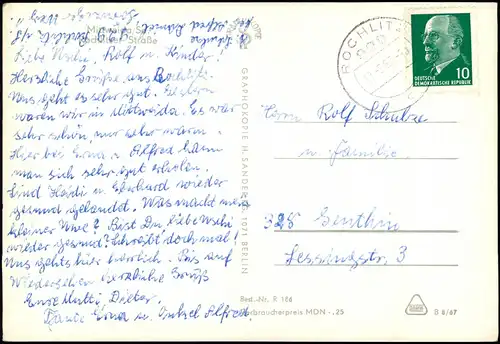 Liebe Uschi, Rolf u. Kinder!
Herzliche Grüße aus Rochlitz.
Uns geht es sehr gut. Gestern
waren wir in Mittweida. Es war
sehr schön, nur sehr warm.
Hier bei Erna u. Alfred kann
man sich sehr gut erholen.
Sind Heidi u. Eberhard wieder
gesund gelandet. Was macht mein
kleiner Uwe? Bist Du, liebe Uschi
wieder gesund? Schreibt doch mal!
Uns gehts hier herrlich. Bis auf
Wiedersehen herzliche Grüße
Eure Mutti, Dieter,
Tante Erna u. Onkel Alfred.
GRAPHOKOPIE H. SANDER KG, 1071 BERLIN
ROCHLITZ
DEUTSCHE
DEMOKRATISCHE REPUBLIK
10
Herrn Rolf Schulze
u. Familie
328 Genthin
Lessingstr. 3
Best.-Nr. R 166
Verbraucherpreis MDN -,25
B 6/67